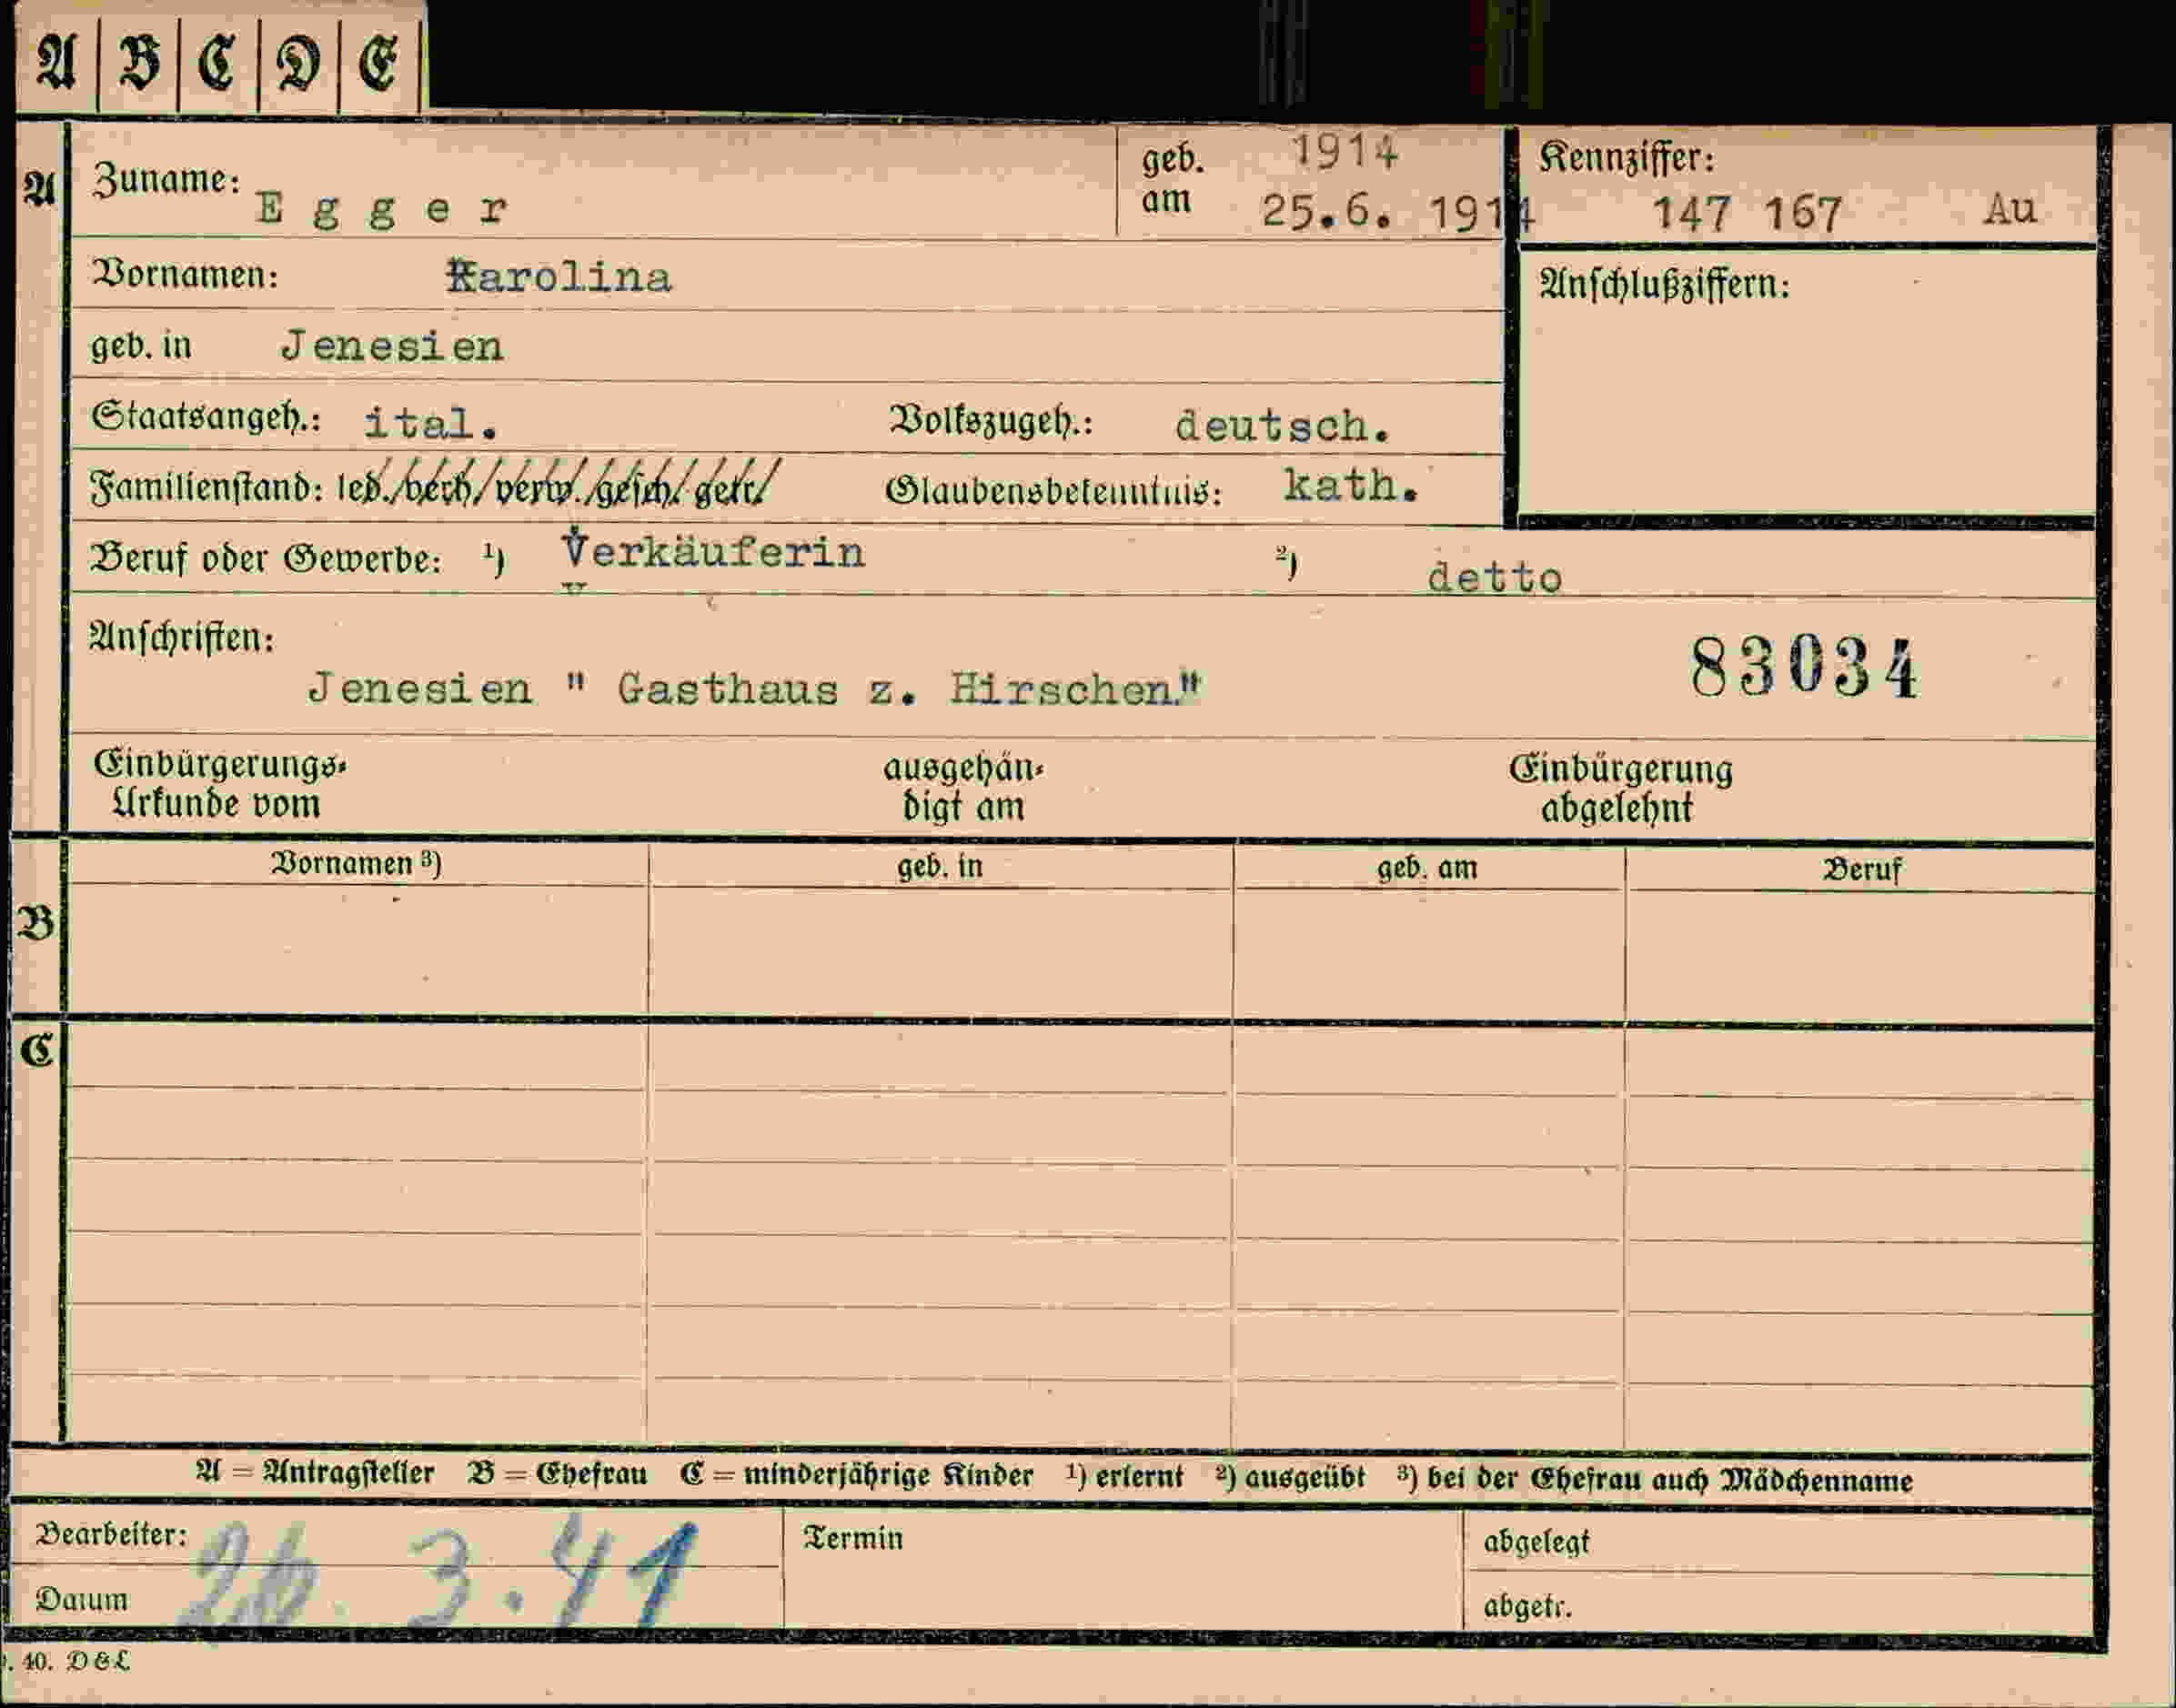 A B C D E
A Zuname: Egger geb. am 1914 25.6. 1914 Kennziffer: 147 167 Au
Vornamen: Karolina Anschlußziffern:
geb. in Jenesien
Staatsangeh.: ital. Volkszugeh.: deutsch.
Familienstand: led./verh/verw./gesch/getr/ Glaubensbekenntnis: kath.
Beruf oder Gewerbe: ¹) Verkäuferin ²) detto
Anschriften: 83034
Jenesien " Gasthaus z. Hirschen"
Einbürgerungs- ausgehän- Einbürgerung
Urkunde vom digt am abgelehnt
Vornamen ³) geb. in geb. am Beruf
B
C
A = Antragsteller B = Ehefrau C = minderjährige Kinder ¹) erlernt ²) ausgeübt ³) bei der Ehefrau auch Mädchenname
Bearbeiter: Termin abgelegt
Datum 3.41 abgetr.
. 40. D&L